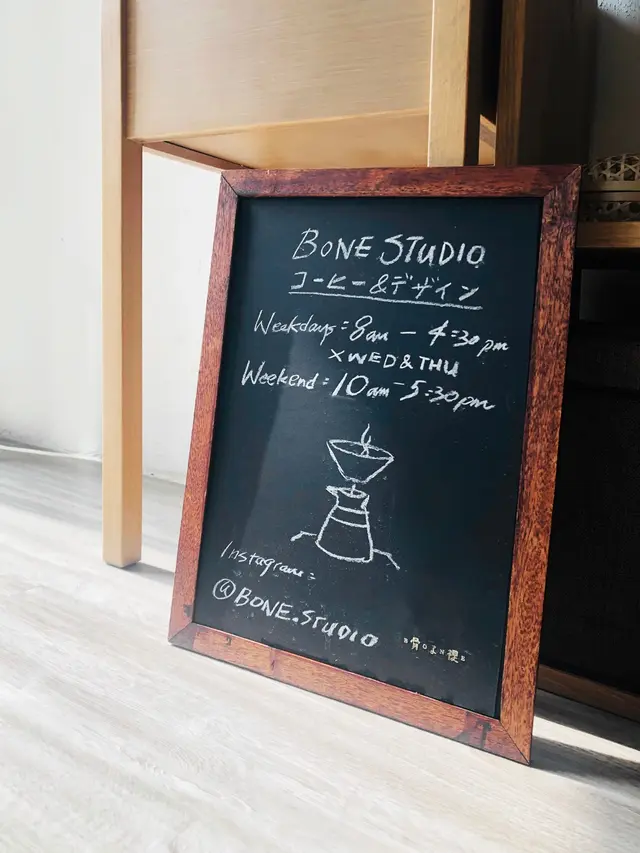 BONE STUDIO
コーヒー&デザイン
Weekdays: 8am - 4:30pm
XWED&THU
Weekend: 10am-5:30pm
Instagram:
@BONE.STUDIO